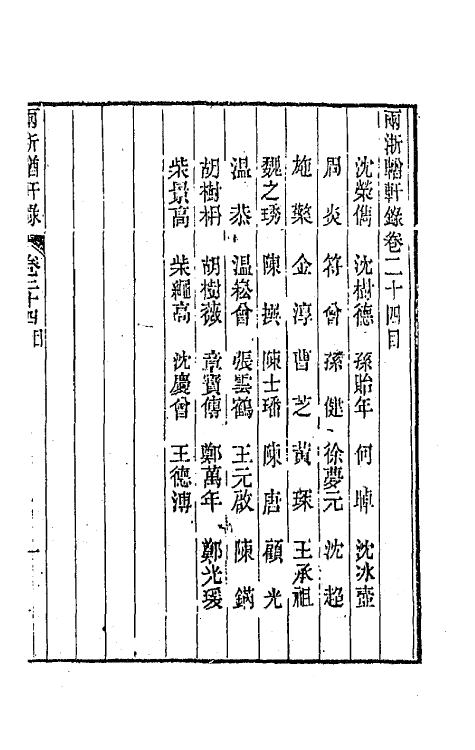 兩浙輶軒錄卷二十四目
沈榮儁 沈樹德 孫貽年 何焯 沈冰壺
周炎 符曾 孫健 徐夢元 沈超
施槃 金淳 曹芝 黃琛 王承祖
魏之琇 陳撰 陳士璠 陳唐 顧光
温恭 温菘曾 張雲鶴 王元啟 陳鏑
胡樹枏 胡樹薇 章寶傳 鄭萬年 鄭光瑗
柴景高 柴繩高 沈慶曾 王德溥
兩浙輶軒錄 卷二十四目 一